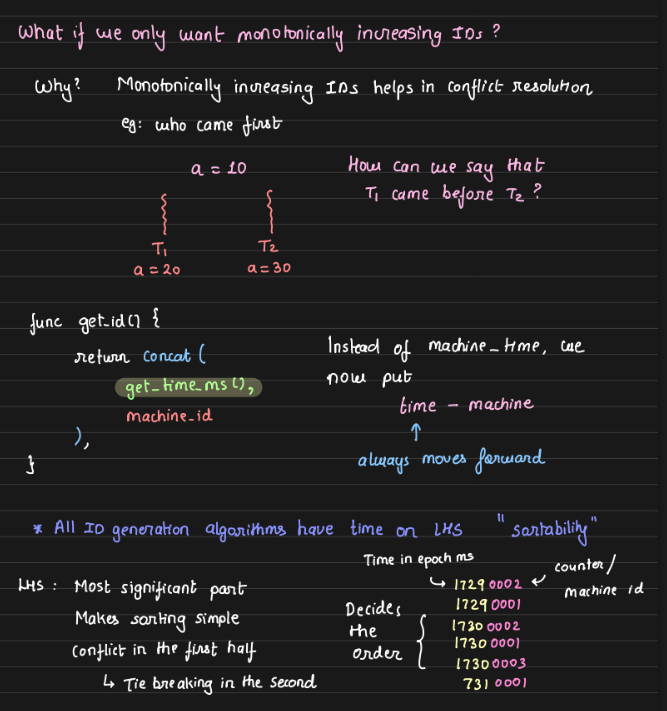 What if we only want monotonically increasing IDs?
Why? Monotonically increasing IDs helps in conflict resolution
eg: who came first
a = 10
T1 T2
a = 20 a = 30
How can we say that
T1 came before T2?
func get_id() {
return concat(
get_time_ms(),
machine_id
),
}
Instead of machine_time, we
now put
time - machine
↑
always moves forward
* All ID generation algorithms have time on LHS "sortability"
LHS: Most significant part
Makes sorting simple
Conflict in the first half
↳ Tie breaking in the second
Time in epoch ms
counter/
machine id
Decides
the
order
1729 0002
1729 0001
1730 0002
1730 0001
1730 0003
731 0001